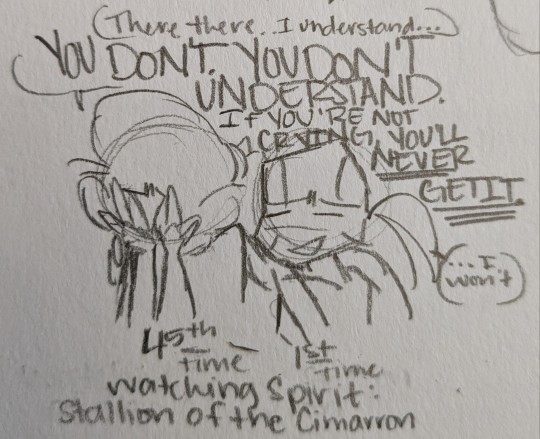 (There there.. I understand...)
YOU DON'T. YOU DON'T
UNDERSTAND.
If YOU'RE NOT
CRYING, YOU'LL
NEVER
GET IT.
(...I
won't)
45th
time
1st
time
watching Spirit:
Stallion of the Cimarron